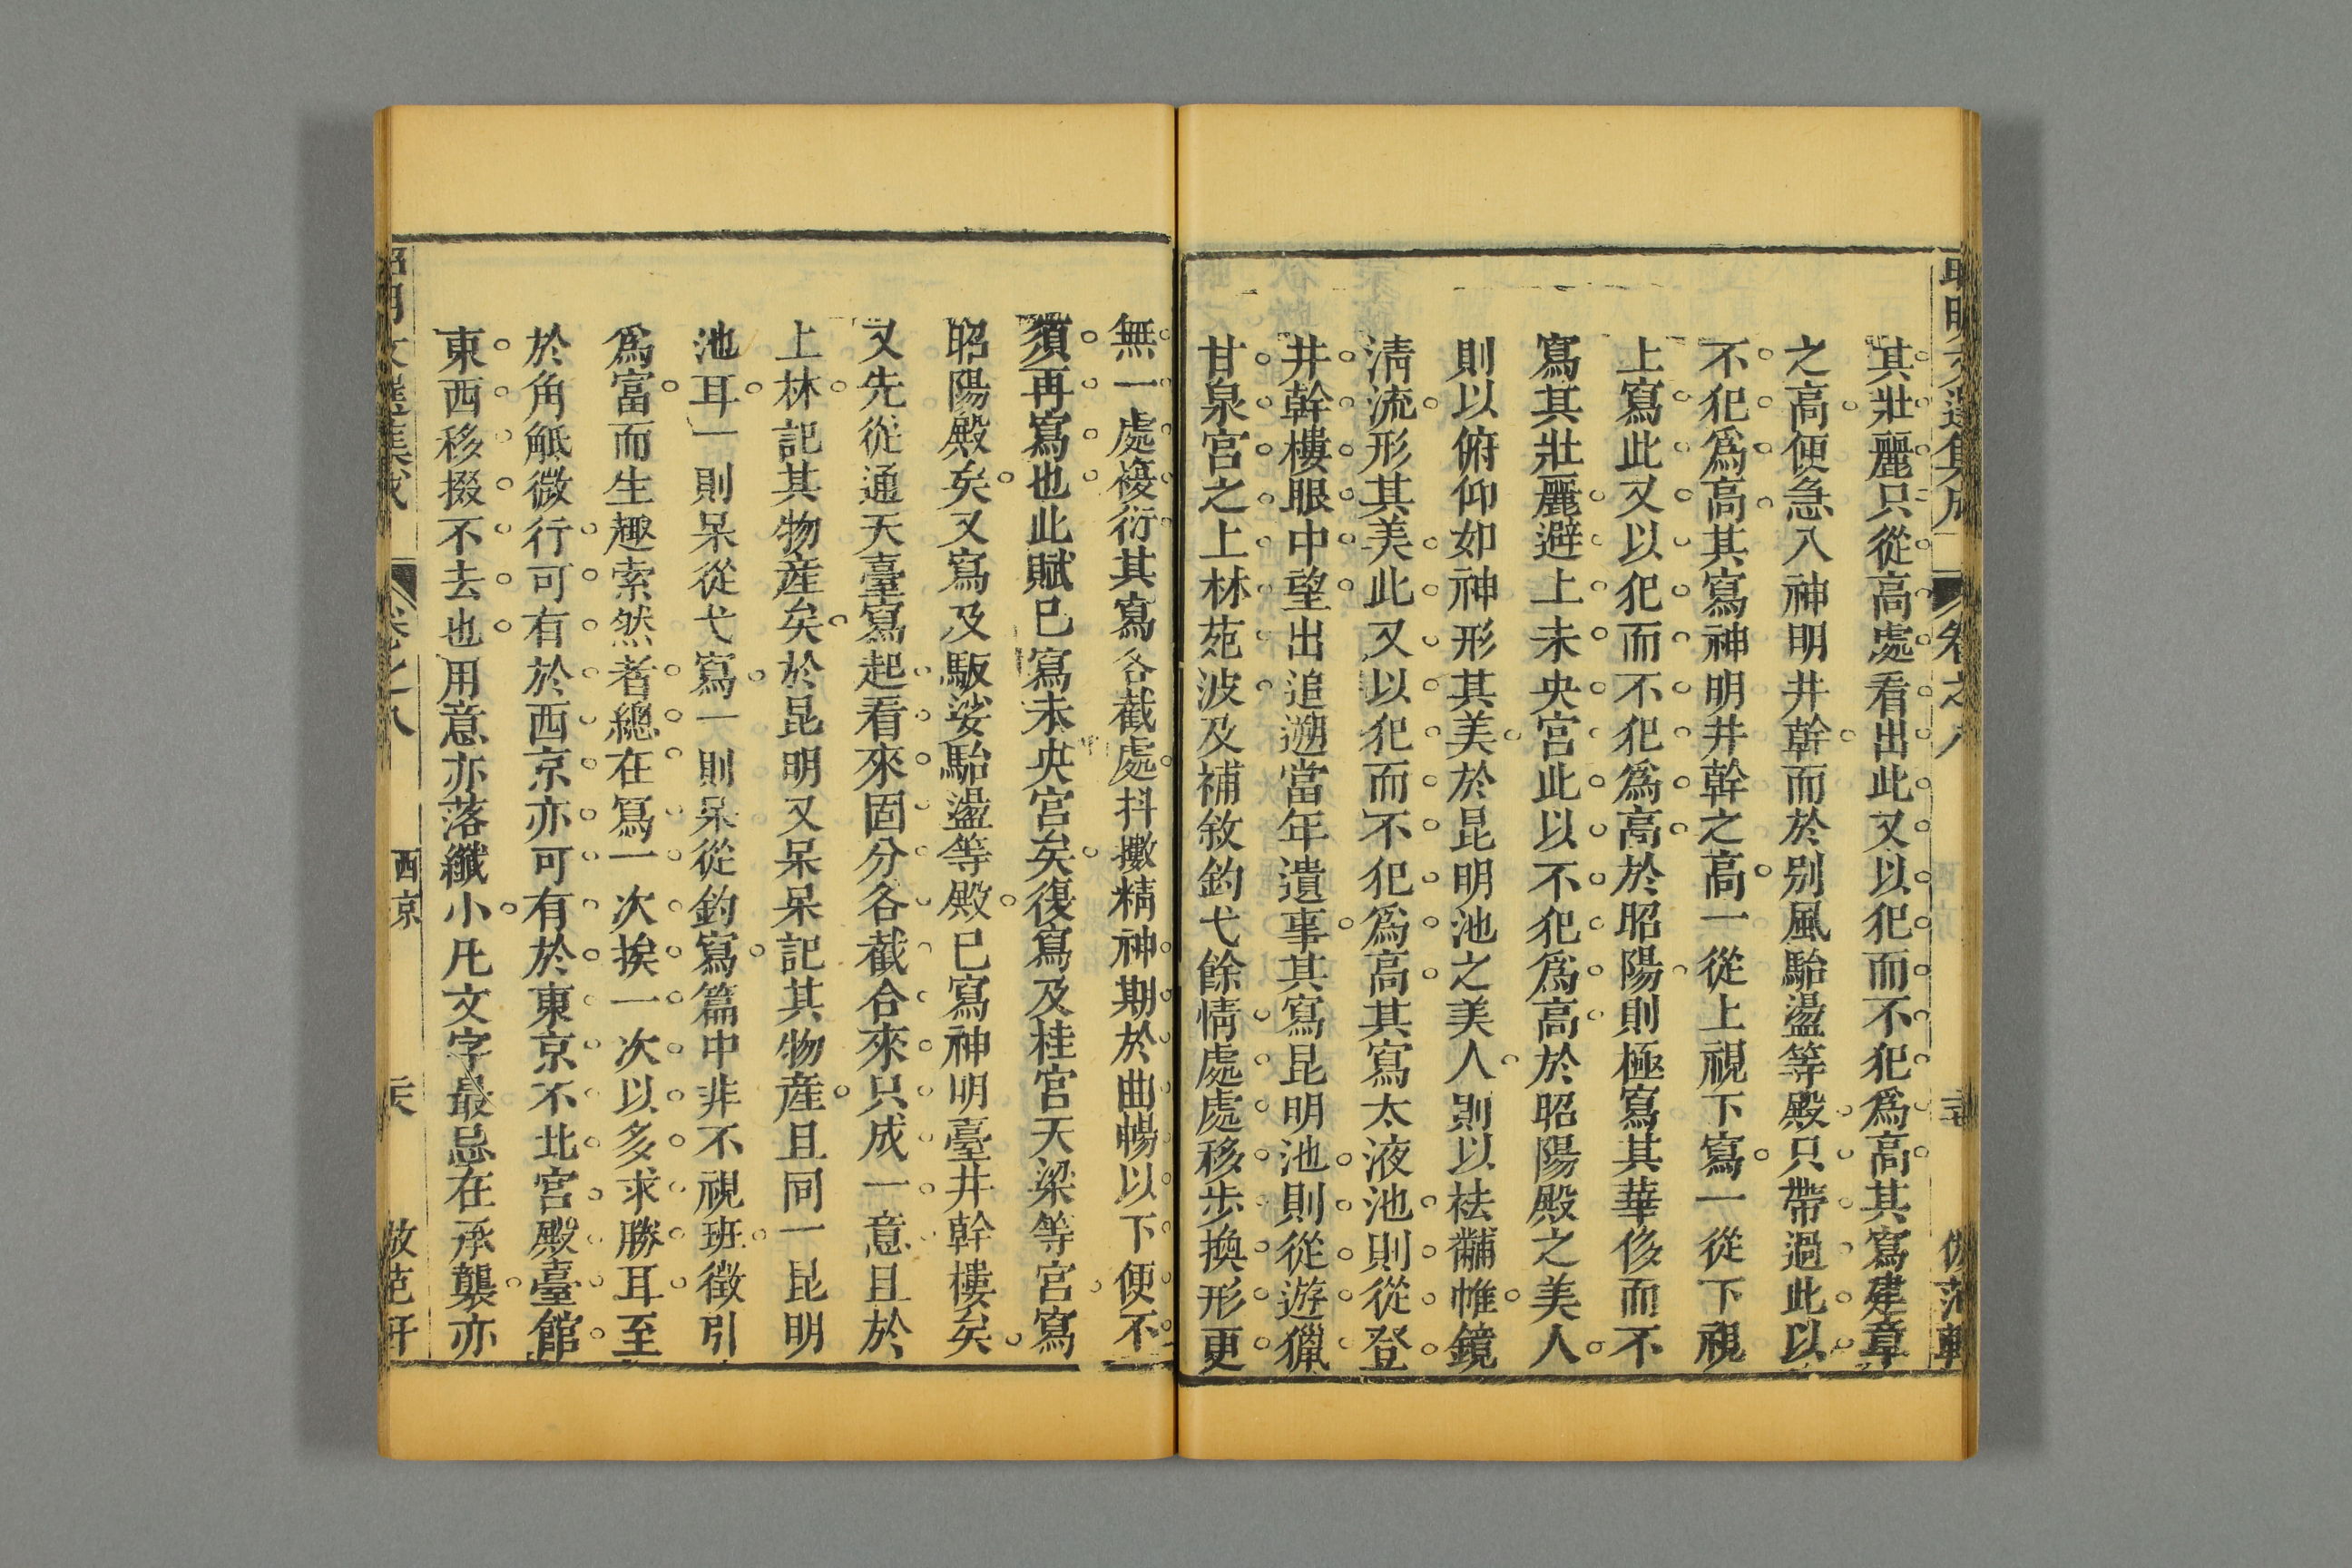 其壯麗只從高處看出此又以犯而不犯爲高其寫建章
之高便急入神明井幹而於别風駘盪等殿只帶過此以
不犯爲高其寫神明井幹之高一從上視下寫一從下視
上寫此又以犯而不犯爲高於昭陽則極寫其華侈而不
寫其壯麗避上未央宫此以不犯爲高於昭陽殿之美人
則以俯仰如神形其美於昆明池之美人則以袪黼帷鏡
淸流形其美此又以犯而不犯爲高其寫太液池則從登
井幹樓眼中望出追遡當年遺事其寫昆明池則從遊獵
甘泉宫之上林苑波及補敘釣弋餘情處處移步換形更
無一處複衍其寫各截處抖擻精神期於曲暢以下便不
須再寫也此賦已寫未央宫矣復寫及桂宫天梁等宫寫
昭陽殿矣又寫及馺娑駘盪等殿已寫神明臺井幹樓矣
又先從通天臺寫起看來固分各截合來只成一意且於
上林記其物産矣於昆明又呆呆記其物産且同一昆明
池耳一則呆從弋寫一則呆從釣寫篇中非不視班徵引
爲富而生趣索然者總在寫一次挨一次以多求勝耳至
於角觝微行可有於西京亦可有於東京不比宫殿臺館
東西移掇不去也用意亦落纖小凡文字最忌在承襲亦
卷之八
西京